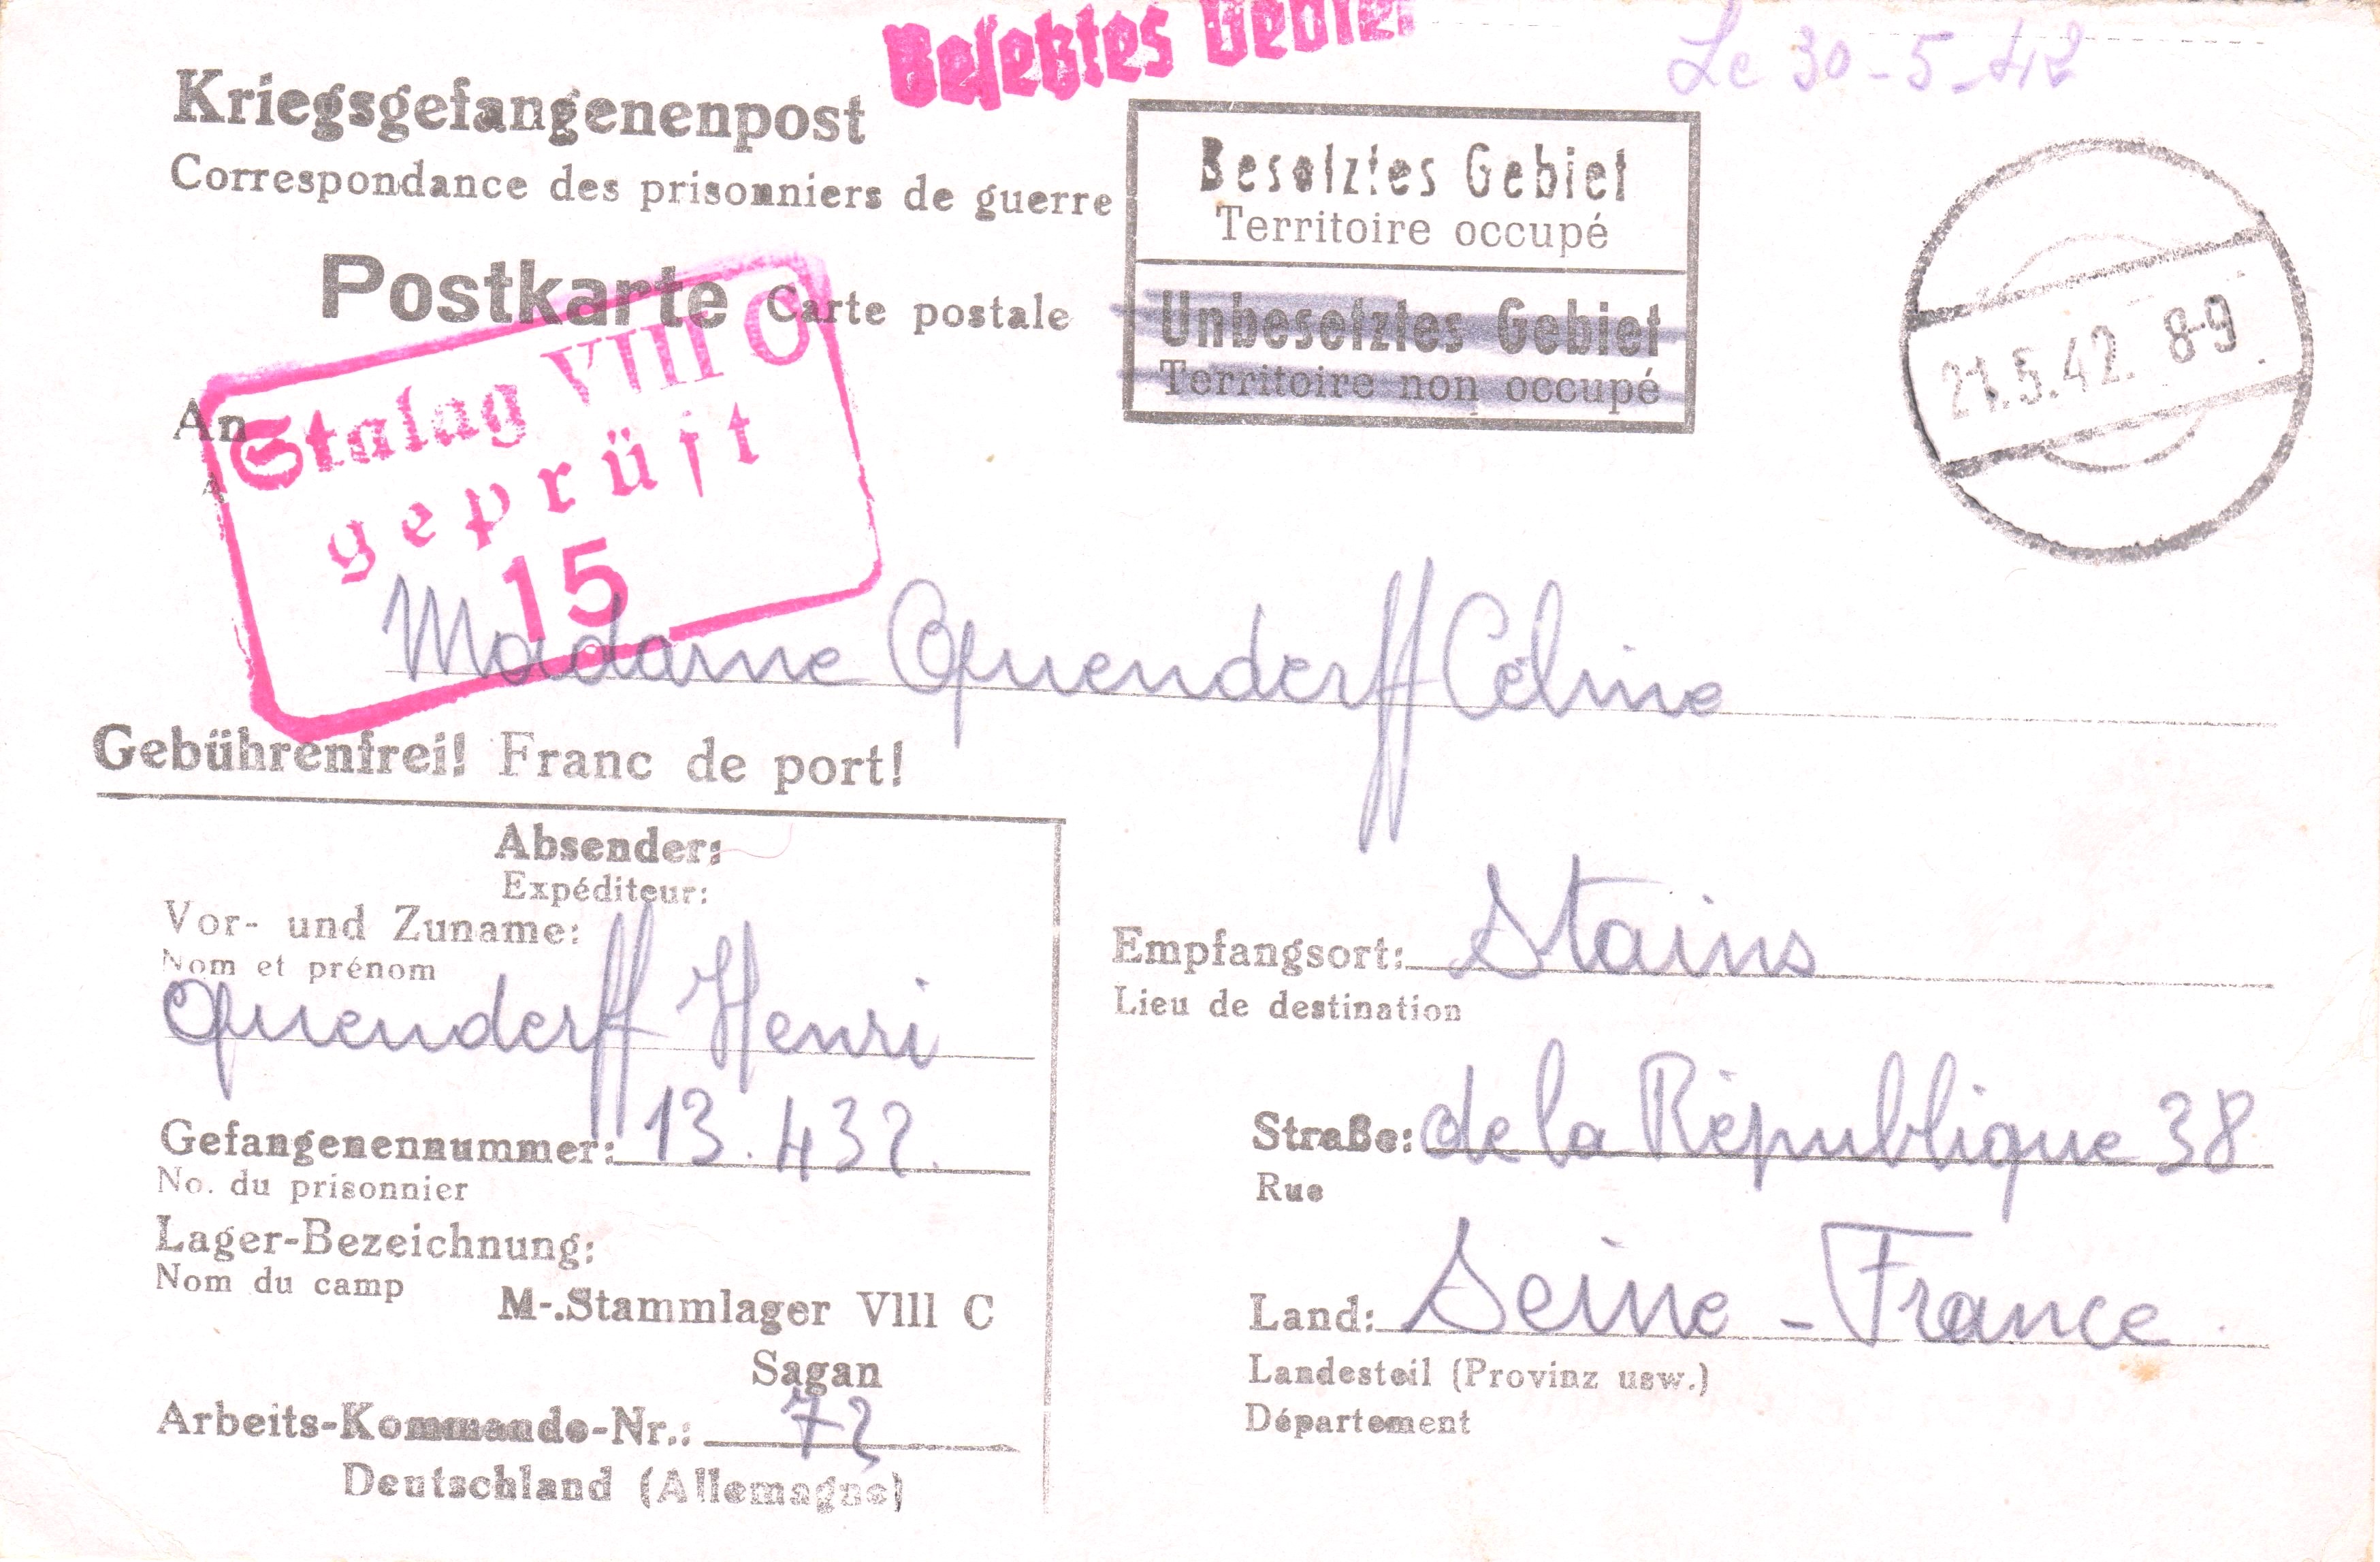 Besetztes Gebiet
Le 30-5-42
Kriegsgefangenenpost
Correspondance des prisonniers de guerre
Besetztes Gebiet
Territoire occupé
Unbesetztes Gebiet
Territoire non occupé
21.5.42. 8-9
Postkarte Carte postale
Stalag VIII C
geprüft
15
An
A
Madame Quenderff Céline
Gebührenfrei! Franc de port!
Absender:
Expéditeur:
Vor- und Zuname:
Nom et prénom
Quenderff Henri
Gefangenennummer: 13.432.
No. du prisonnier
Lager-Bezeichnung:
Nom du camp
M-.Stammlager VIII C
Sagan
Arbeits-Kommando-Nr.: 72
Deutschland (Allemagne)
Empfangsort: Stains
Lieu de destination
Straße: de la République 38
Rue
Land: Seine - France
Landesteil (Provinz usw.)
Département